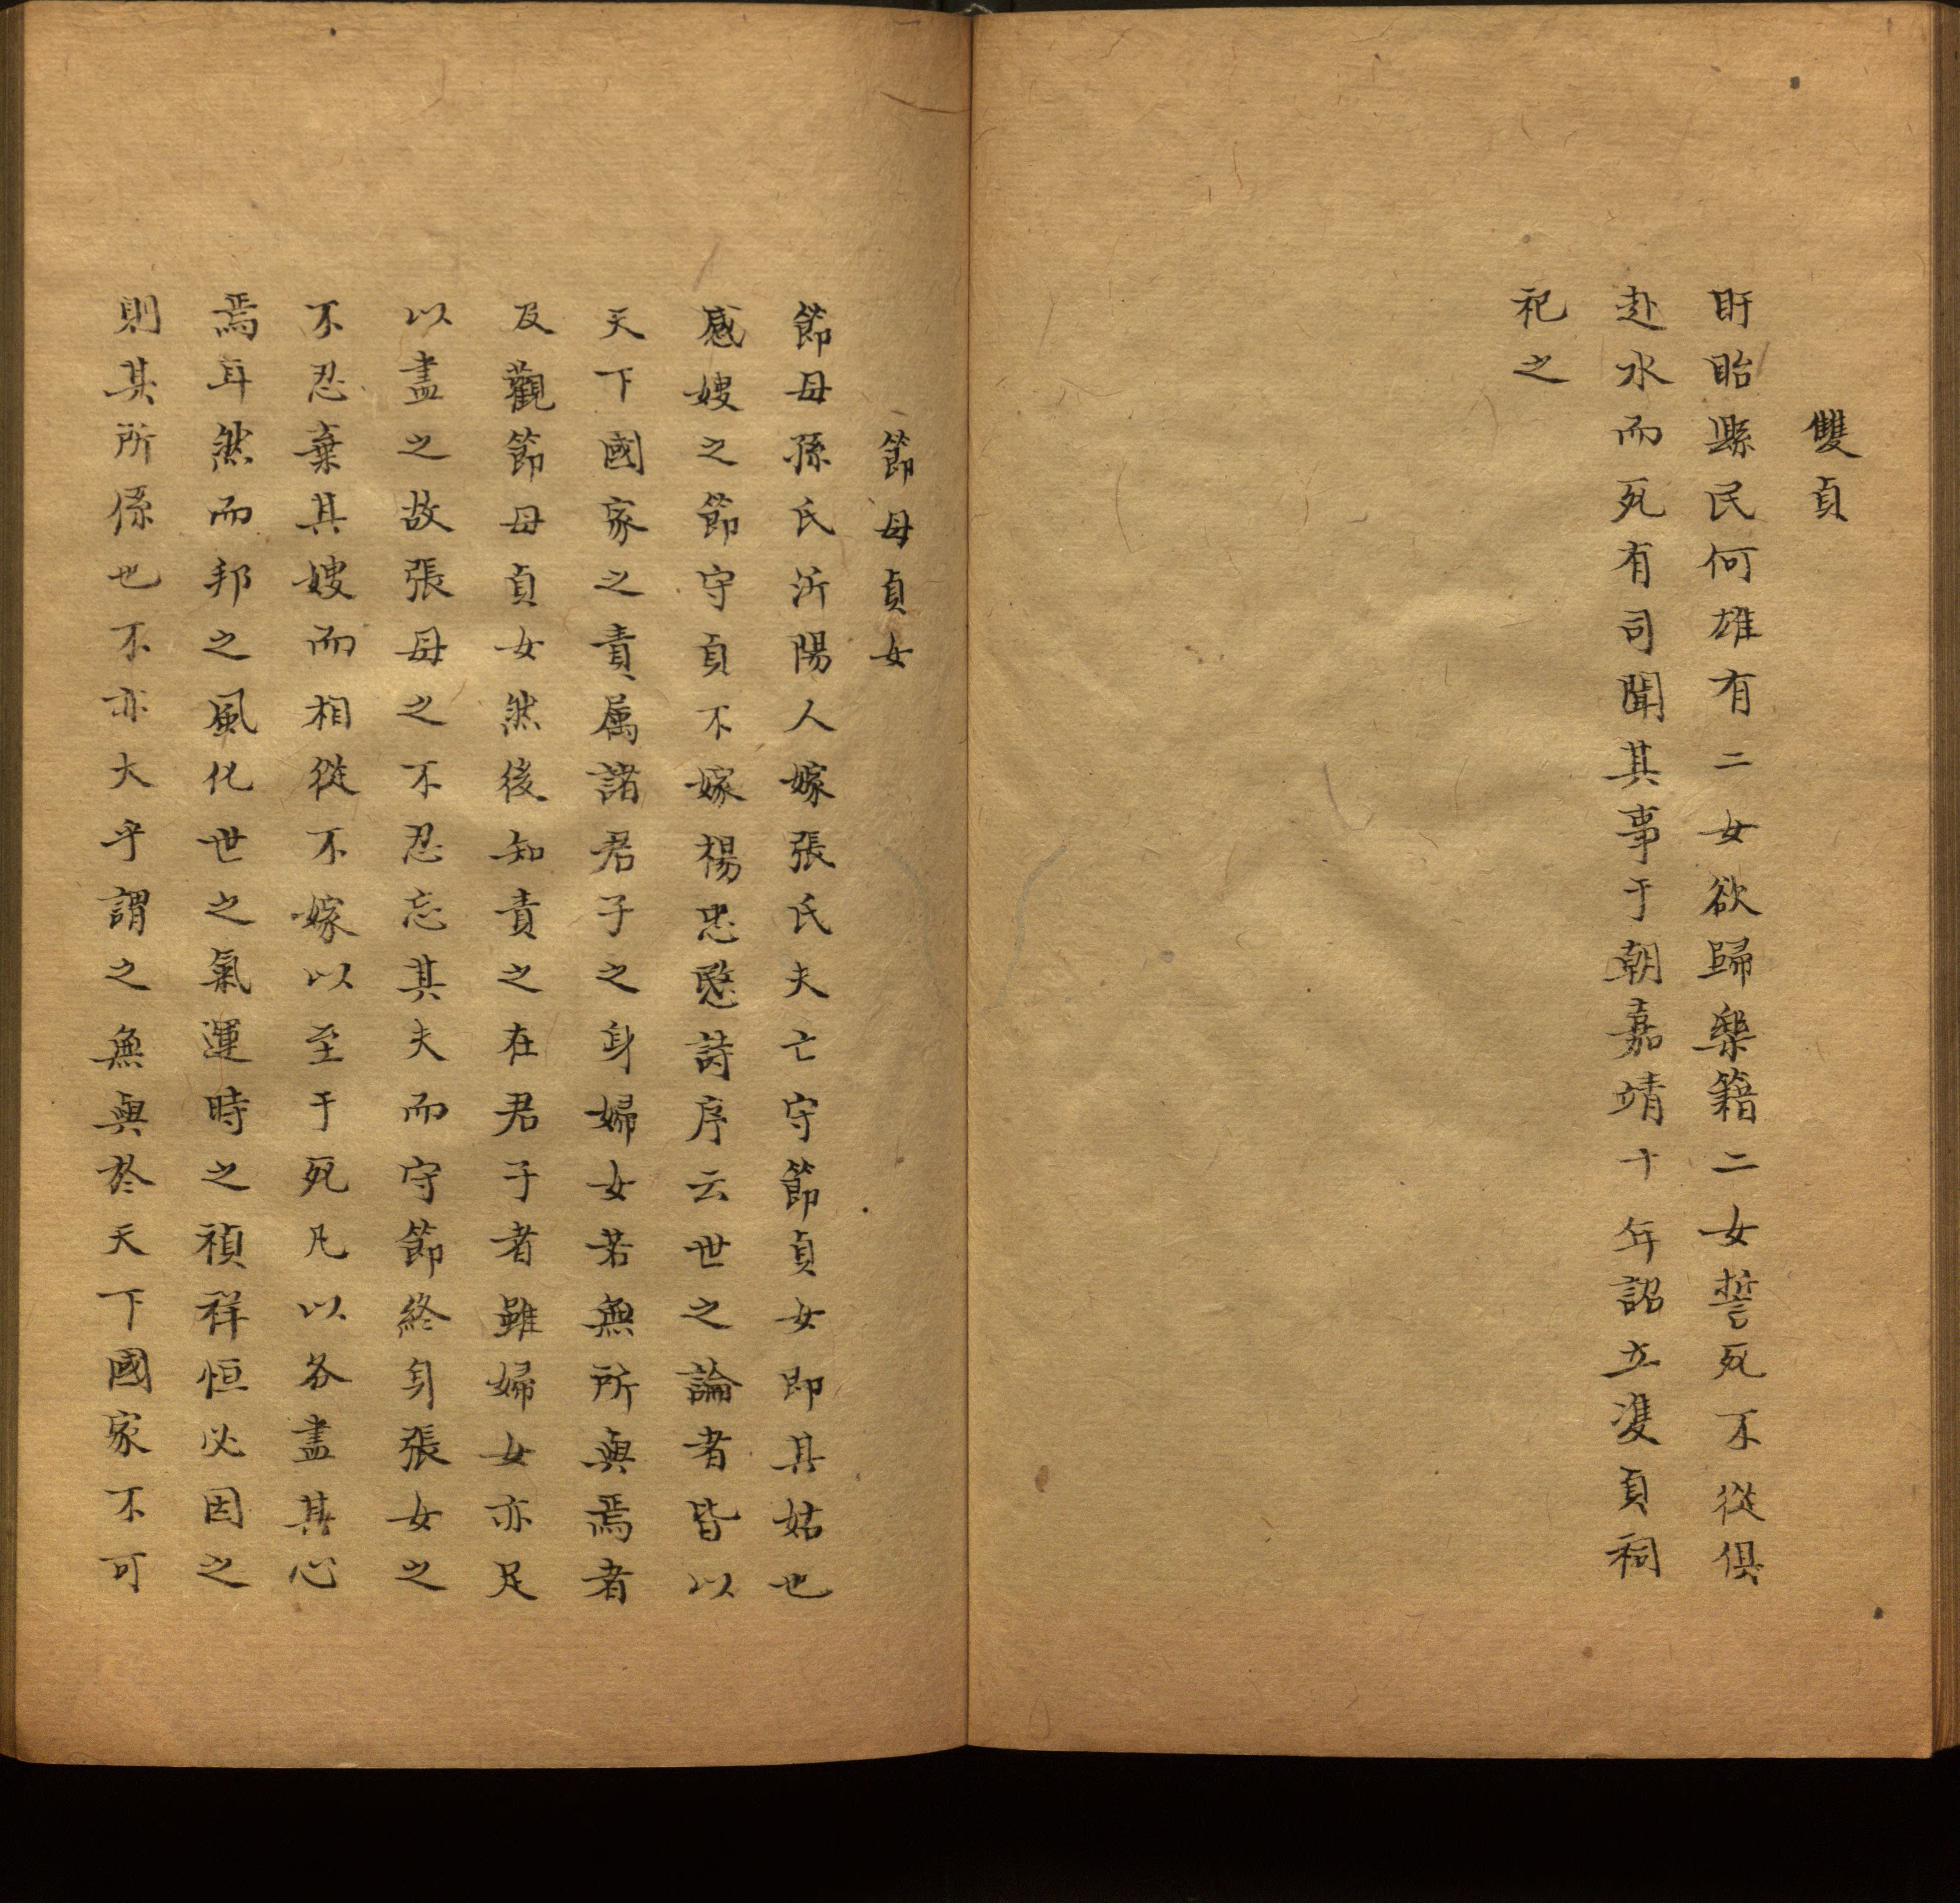 雙貞
盱眙縣民何雄有二女欲歸樂籍二女誓死不從俱
赴水而死有司聞其事于朝嘉靖十年詔立雙貞祠
祀之
節母貞女
節母孫氏沂陽人嫁張氏夫亡守節貞女即其姑也
感嫂之節守貞不嫁楊忠愍詩序云世之論者皆以
天下國家之責属諸君子之身婦女若無所與焉者
及觀節母貞女然後知責之在君子者雖婦女亦足
以盡之故張母之不忍忘其夫而守節終身張女之
不忍棄其嫂而相從不嫁以至于死凡以各盡其心
焉耳然而邦之風化世之氣運時之禎祥恒必因之
則其所係也不亦大乎謂之無與於天下國家不可